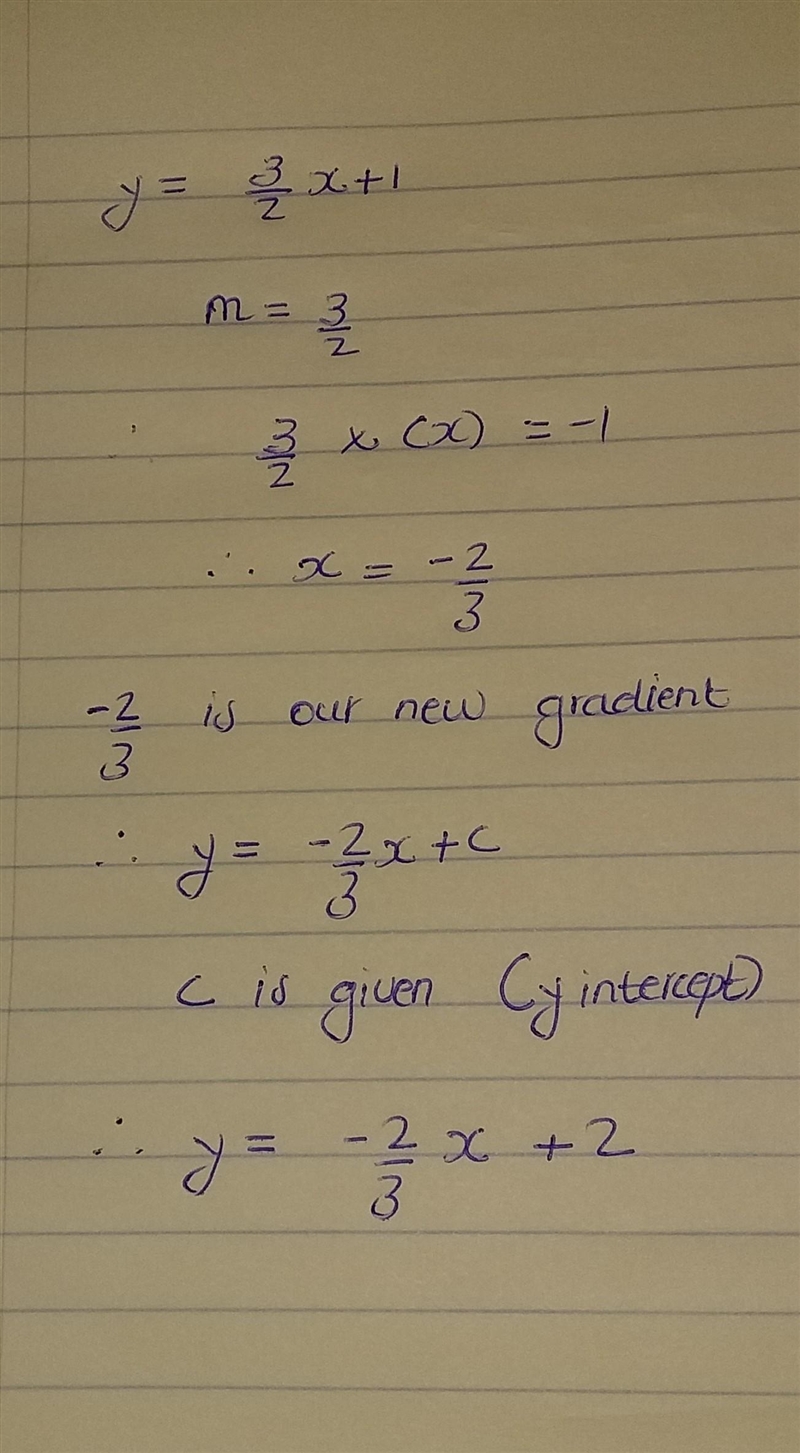 y = 3/2 x + 1
m = 3/2
∴ 3/2 × (x) = -1
∴ x = -2/3
-2/3 is our new gradient
∴ y = -2/3 x + c
c is given (y intercept)
∴ y = -2/3 x + 2